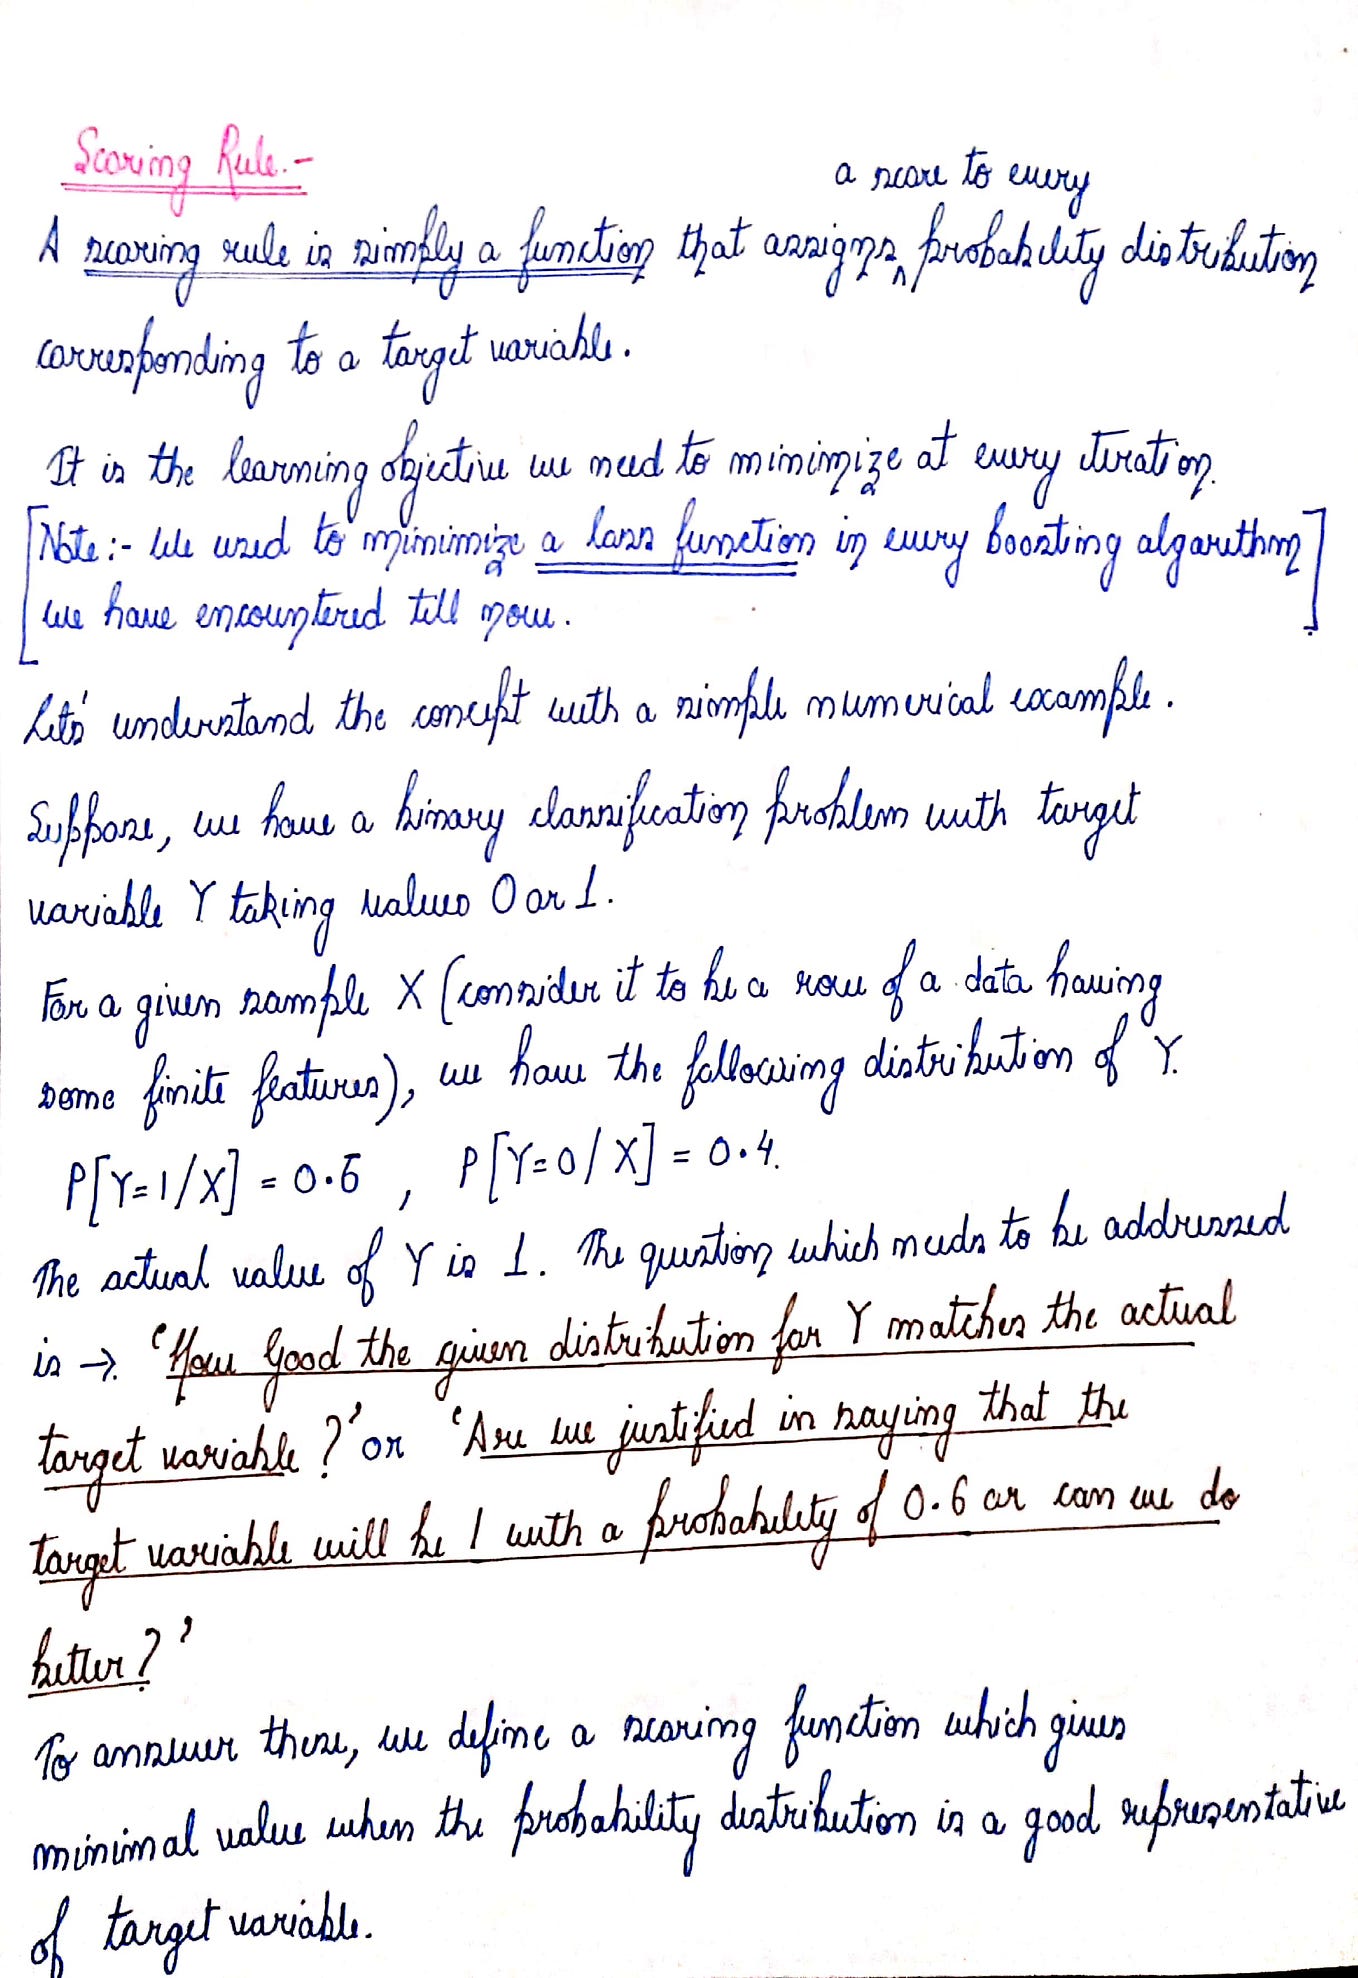 Scoring Rule.-
a score to every
A scoring rule is simply a function that assigns ^ probability distribution
corresponding to a target variable.
It is the learning objective we need to minimize at every iteration.
[Note:- We used to minimize a loss function in every boosting algorithm
we have encountered till now.]
Let's understand the concept with a simple numerical example.
Suppose, we have a binary classification problem with target
variable Y taking values 0 or 1.
For a given sample X (consider it to be a row of a data having
some finite features), we have the following distribution of Y.
P[Y=1/X] = 0.6 , P[Y=0/X] = 0.4.
The actual value of Y is 1. The question which needs to be addressed
is →. 'How Good the given distribution for Y matches the actual
target variable?' or 'Are we justified in saying that the
target variable will be 1 with a probability of 0.6 or can we do
better?'
To answer these, we define a scoring function which gives
minimal value when the probability distribution is a good representative
of target variable.